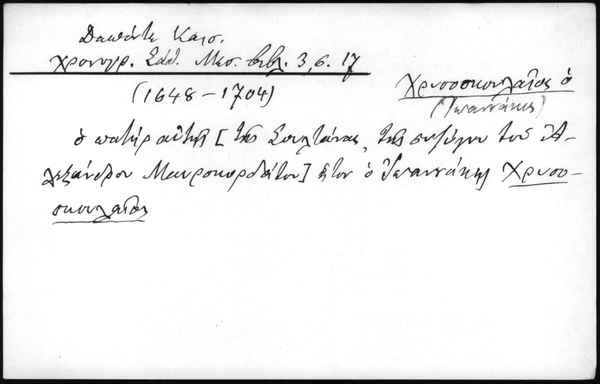 Δαπόντε Καισ.
Χρονογρ. Σάθ. Μεσ. Βιβλ. 3, 6. 17
(1648-1704)
Χρυσοσκουλαῖος ὁ
(Ἰωαννάκης)
ὁ πατὴρ αὐτῆς [τῆς Σουλτάνας, τῆς συζύγου τοῦ Ἀ-
λεξάνδρου Μαυροκορδάτου] ἦτον ὁ Ἰωαννάκης Χρυσο-
σκουλαῖος